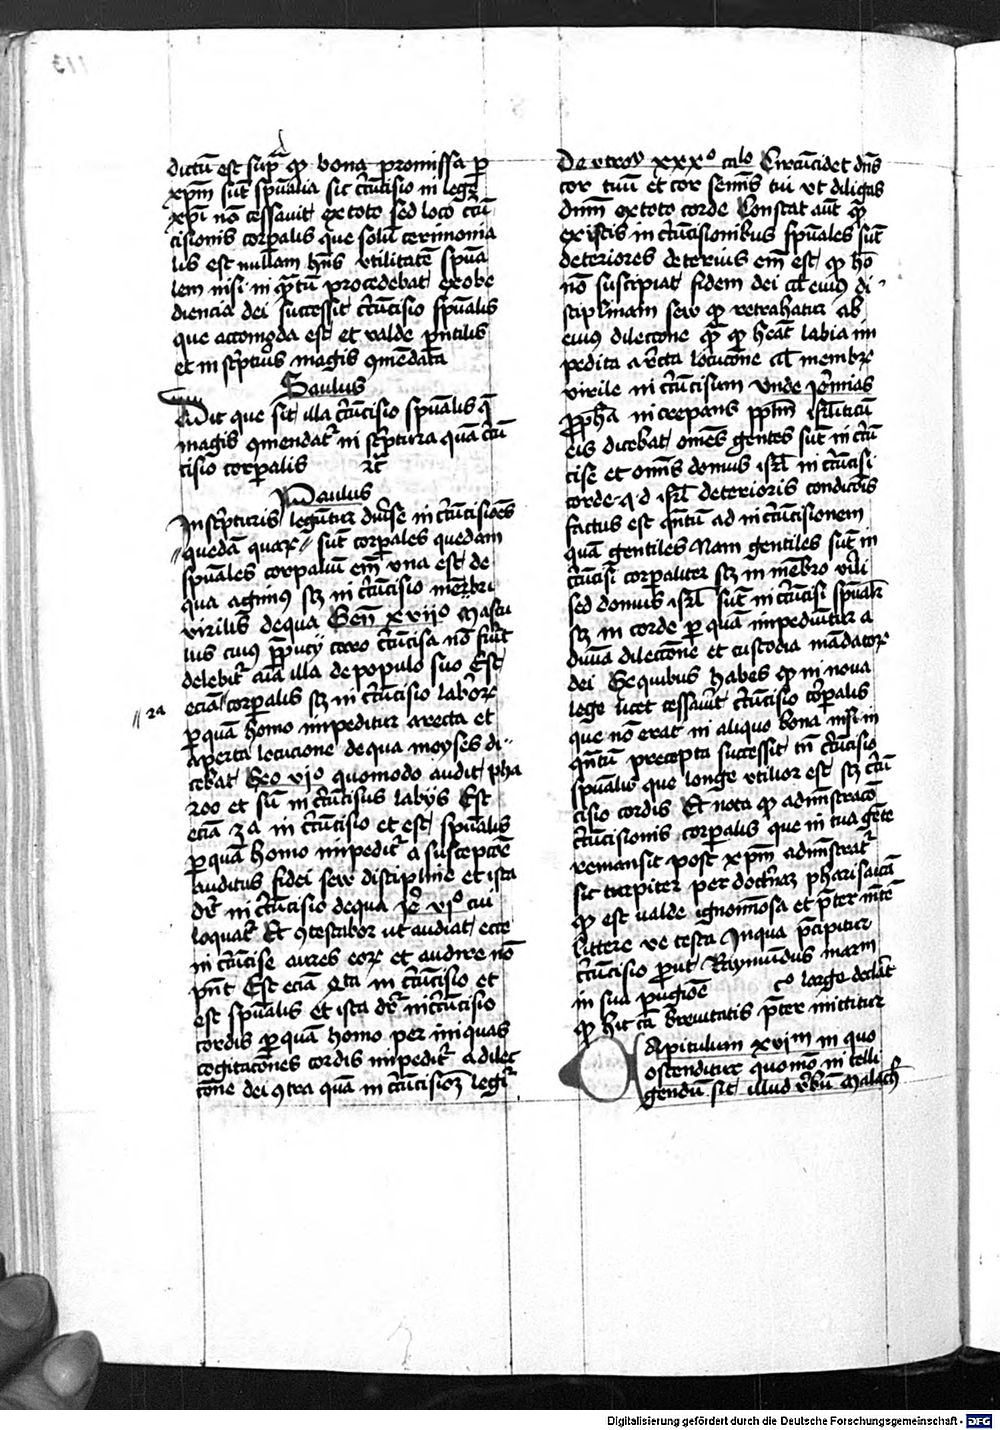 dictū est sup̄ꝰ qꝫ bona promissa p
xpm̄ sūt spūalia sic circūcisio in lege
xpī nō cessavit ex toto sed loco circū
cisionis corꝑalis que solū cerimonia
lis est nullam hn̄s vtilitatē spūa
lem nisi in qꝫtū procedebat ex obe
diencia dei successit circūcisio spūalis
que accomoda est et valde
et in scpturis magis 9mēdata
Saulus
Dic que sit illa circūcisio spūalis q̄
magis 9mendatr in scptura quā circū
cisio corꝑalis ꝛc̄
Paulus
In scpturis legūtur diu͛se in circūcisiōes
quedā quarꝝ sūt corꝑales quedam
spūales corꝑaliū em̄ vna est de
qua agimꝰ scꝫ in circūcisio membri
virilis de qua Gen̄ xvijo Mascu
lus cuiꝰ ppucij caro circūcisa nō fu͛it
delebitr aīa illa de populo suo Est
2a
eciā corꝑalis scꝫ in circūcisio labiorꝝ
ꝑ quā homo impeditur a recta et
aperta locucione de qua moyses di
cebat Exo vjo quomodo audit pha
rao et sū in circūcisus labijs Est
eciā 3a in circūcisio et est spūalis
ꝑ quā homo impeditr a suscepcōe
auditus fidei seu discipline et ista
dr̄ in circūcisio de qua Je͛ vjo cui
loquar Et 9testabor ut audiat ecce
in circūcise aures eorꝝ et audire nō
pn̄t Est eciā 4ta in circūcisio et
est spūalis et ista dr̄ in circūcisio
cordis ꝑ quā homo per iniquas
cogitacōnes cordis impeditr a dilec
cōne dei 9tra quā in circūcisionē legitr
Deutroꝰ xxxo calo Circūcidet dn̄s
cor tuū et cor semīs tui vt diligas
dn̄m ex toto corde Constat aūt qꝫ
ex istis in circūcisionibus spūales sūt
deteriores deterius em̄ est qꝫ hō
nō suscipiat fidem dei vl̄ eiuꝰ di
sciplinam seu qꝫ retrahatur ab
eiuꝰ dileccone quā qꝫ heāt labia im
pedita a recta locucōne vl̄ membrꝝ
virile in circūcisum vnde Je͛mias
ꝓpha increpans ppl̄m isrl̄iticū
eis dicebat omēs gentes sūt in circū
cise et om̄s domus isrl̄ in circūcisi
corde .q.d isrl̄ deterioris condicōis
factus est qn̄tū ad in circūcisionem
quā gentiles Nam gentiles sūt in
circūcisi corꝑaliter scꝫ in mēbro virili
sed domus isrl̄ sūt in circūcisi spūalr
scꝫ in corde ꝑ quā impediūtur a
diuīa dileccōne et custodia mādatorꝝ
dei Ex quibus habes qꝫ in noua
lege licet cessau͛it circūcisio corꝑalis
que nō erat in aliquo bona nisi in
qn̄tū precepta successit tn̄ circūcisio
spūalis que longe vtilior est scꝫ circū
cisio cordis Et nota qꝫ adm̄straco
circūcisionis corꝑalis que in tua gēte
remansit post xpm̄ adm̄stratr
sic turpiter per doctrinā pharisaicā
qꝫ est valde ignom̄iosa et p̄ter mētē
littere ve testi In qua p̄cipitur
circūcisio prout Raymūdus marin
in sua pugiōe co large declat
qꝫ hic cā breuitatis p̄ter mittitur
Capitulum xviijm in quo
ostenditur quomō intelli
gendū sit illud v͛bū Malach